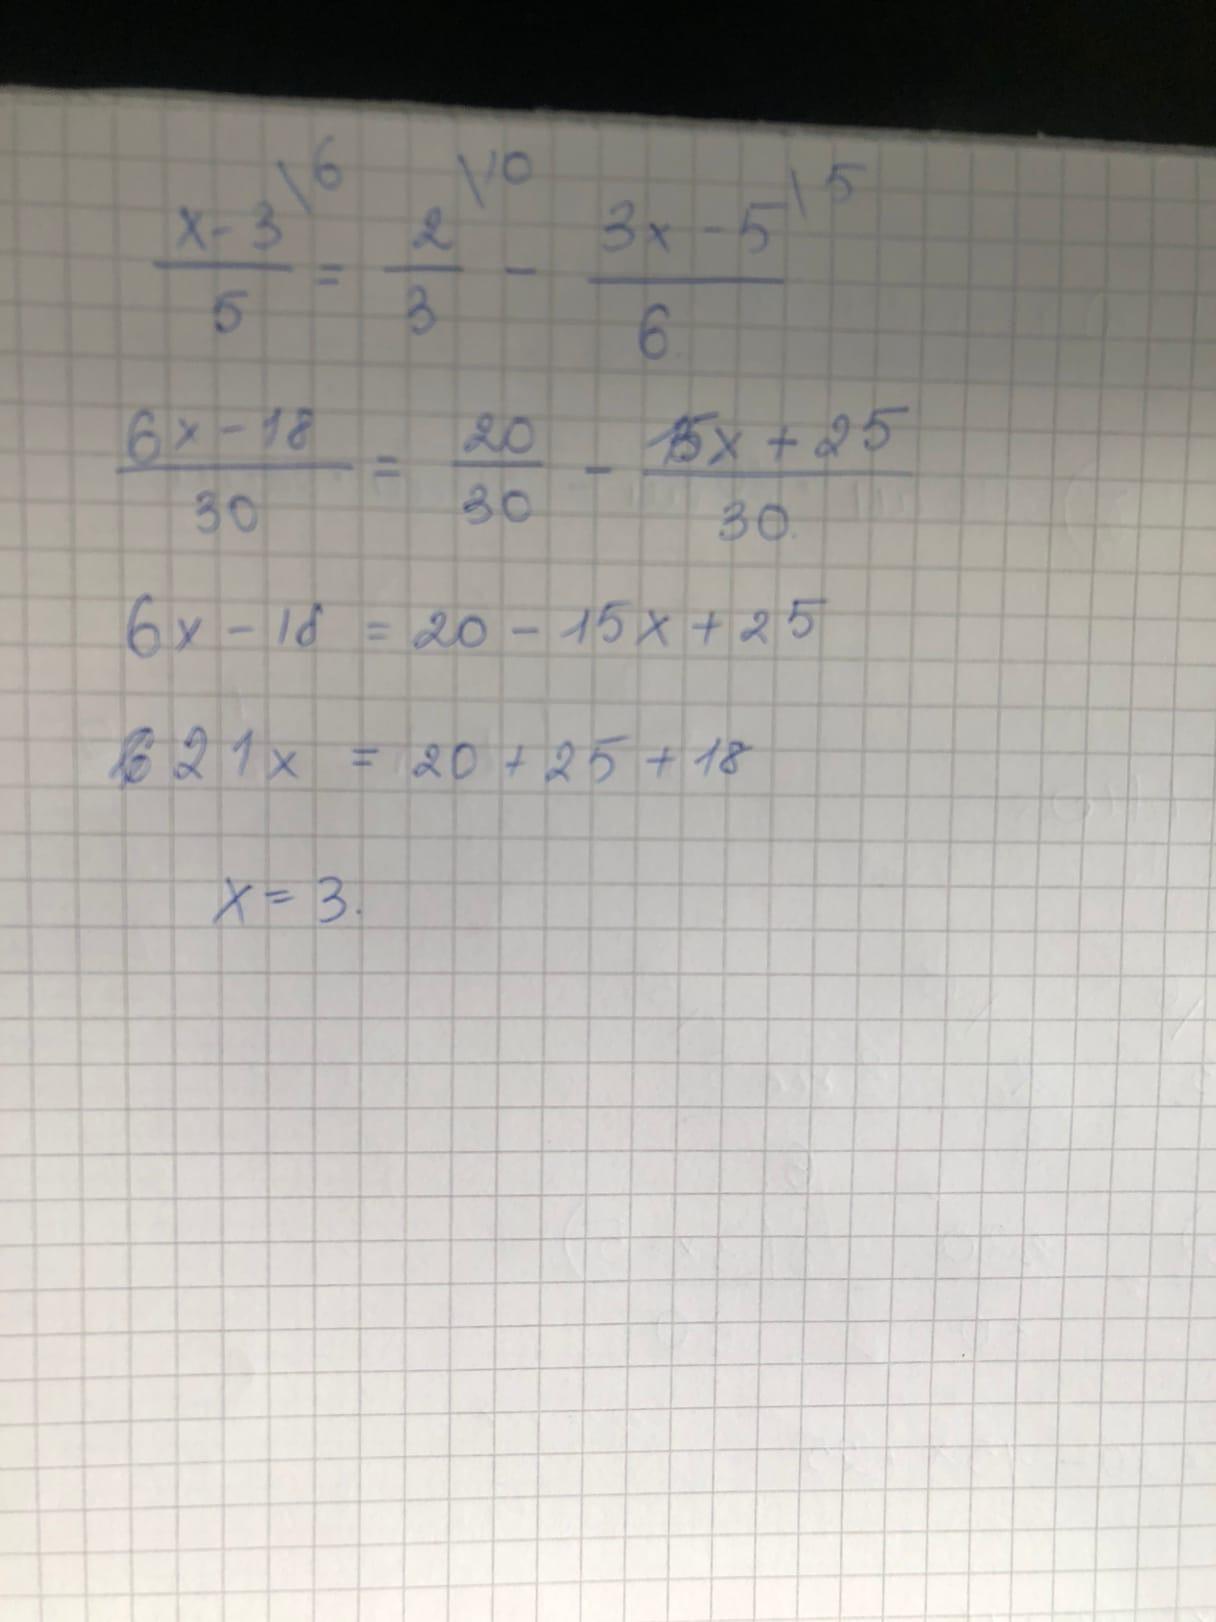 x-3\6 / 5 = 2\10 / 3 - 3x-5\5 / 6
6x-18 / 30 = 20 / 30 - 15x+25 / 30.
6x-18 = 20-15x+25
21x = 20+25+18
x=3.